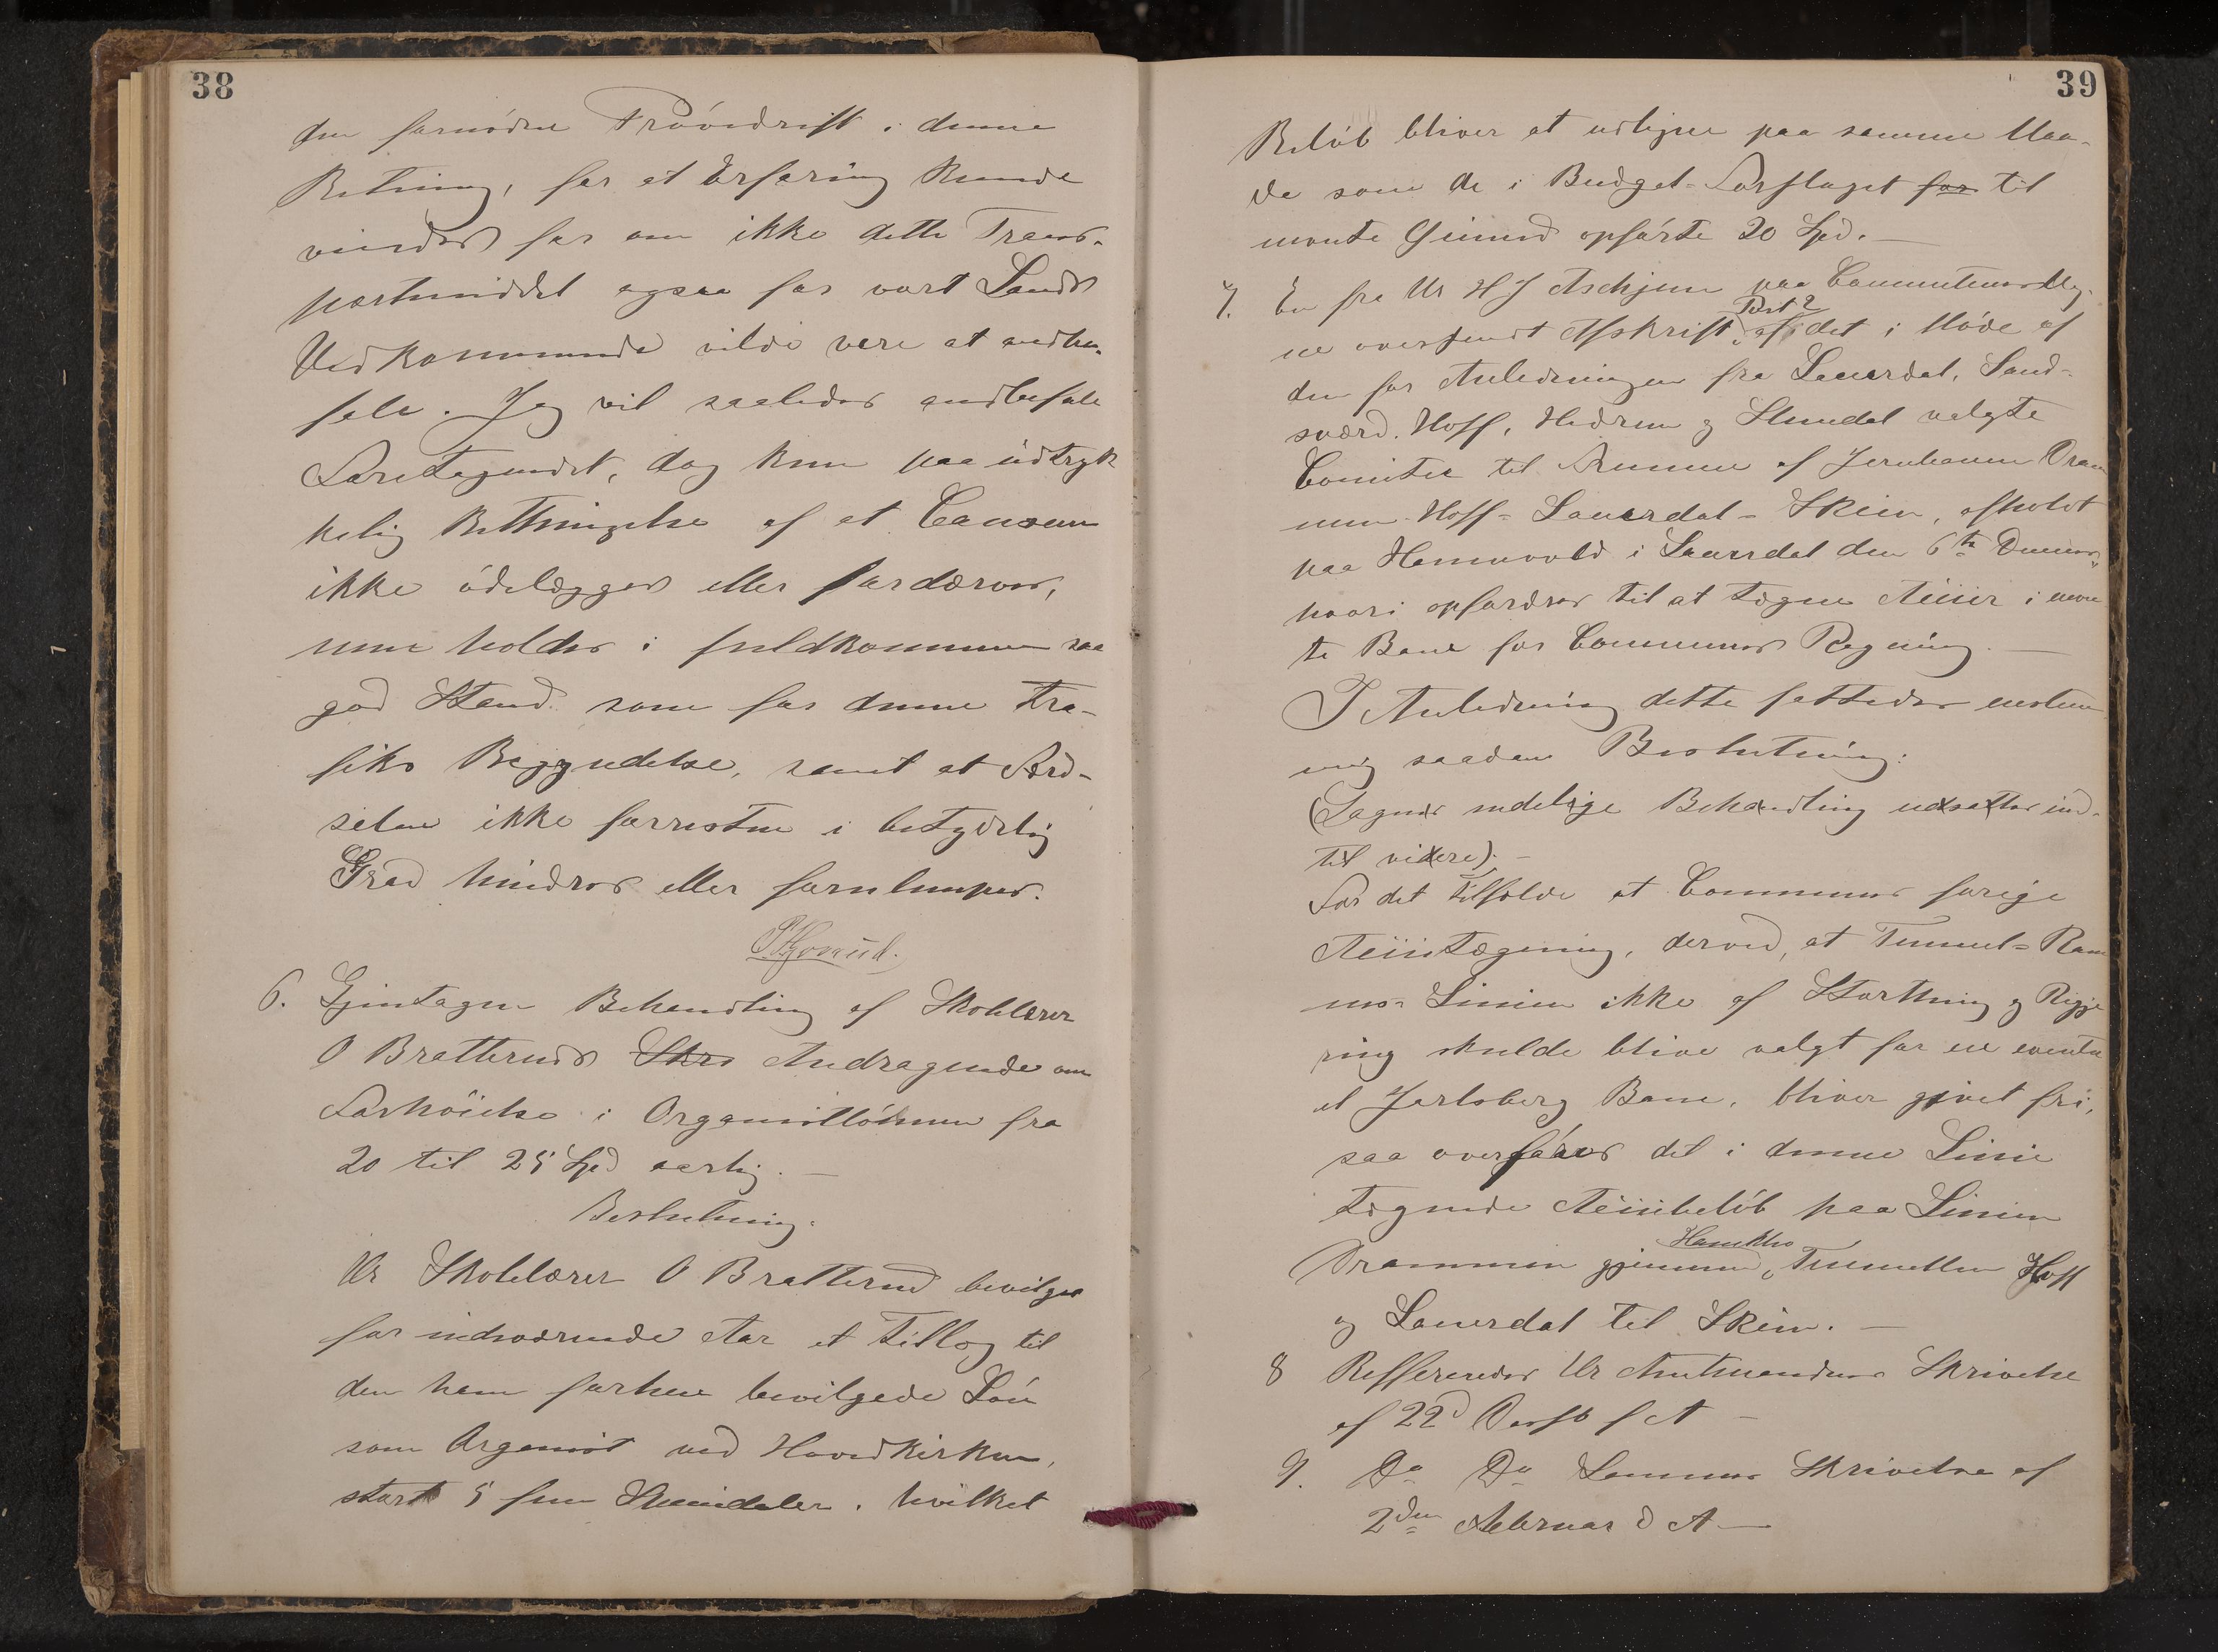 38
den fornödne Prövedrift i denne
Retning, for at Erfaring kunde
vindes for om ikke dette Trans-
portmiddel ogsaa for vort Lands
Vedkommende vilde være at anbe-
fale. Jeg vil saaledes anbefale
Foretagendet, dog kun paa udtryk
kelig Bettingelse af at Causeen
ikke ödelægges eller fordærves,
men holdes i fuldkommen saa
god Stand som for denne Tra-
fiks Begyndelse, samt at Færd-
selen ikke forresten i betydelig
Grad hindres eller forulempes.
6. Gjentagen Behandling af Skolelærer
O Bratteruds Andragende om
Forhöielse i Organistlönnen fra
20 til 25 Spd aarlig. —
Beslutning.
Hr Skolelærer O Bratterud bevilges
for indværende Aar et Tillæg til
den ham forhen bevilgede Lön
som Organist ved Hovedkirken,
stort 5 fem Speciedaler, hvilket
39
Belöb bliver at udligne paa samme Maa-
de som de i Budget-Forslaget for til
nævnte Öiemed opförte 20 Spd. —
7. En fra Hr H J Aschjem paa Communens Veg-
ne oversendt Afskrift af Post 2 i det i Möde af
den for Anledningen fra Lauerdal, Sand-
sværd, Hoff, Hedrum og Slemdal valgte
Comitee til Fremme af Jernbanen Dram
men-Hoff-Lauerdal-Skien, afholdt
paa Hemvold i Lauerdal den 6te Dennes,
hvori opfordres til at tegne Actier i nævn
te Bane for Communens Regning. —
I Anledning dette fattedes enstem
mig saadan Beslutning:
(Sagens endelige Behandling udsættes ind-
til videre). —
For det Tilfælde at Communens forige
Actietegning, derved, at Tunnel-Ram
nes-Linien ikke af Storthing og Regje
ring skulde blive valgt for en eventu
el Jarlsberg Bane, bliver givet fri,
saa overföres det i denne Linie
tegnede Actiebelöb paa Linien
Drammen gjennem Tunnellen Hoff
og Lauerdal til Skien. —
8 Refereredes Hr Amtmandens Skrivelse
af 22d f A —
9. Do Do Sammes Skrivelse af
2den Februar d A —